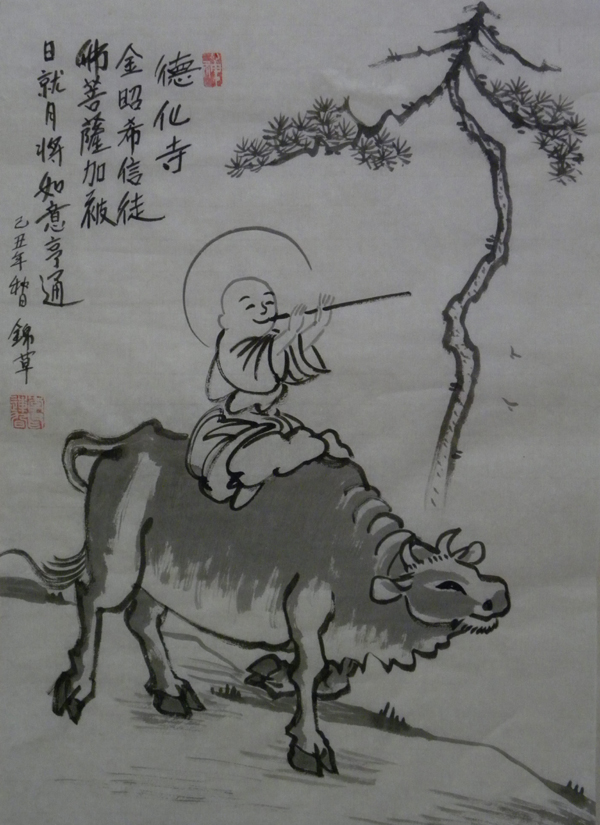 德化寺
金昭希信徒
佛菩薩加被
日就月將如意亨通
己丑年秋日
錦草